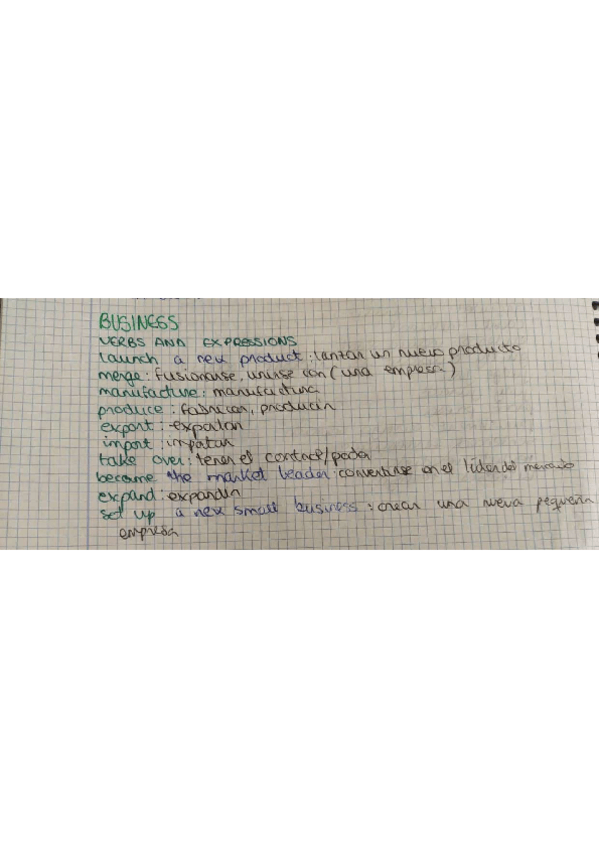 BUSINESS
VERBS AND EXPRESSIONS
launch a new product: lanzar un nuevo producto
merge: fusionarse, unirse con (una empresa)
manufacture: manufacturar
produce: fabricar, producir
export: exportar
import: impotar
take over: tener el contaol/poder
become the market leader: convertirse en el líder del mercado
expand: expandir
set up a new small business: crear una nueva pequeña
empresa